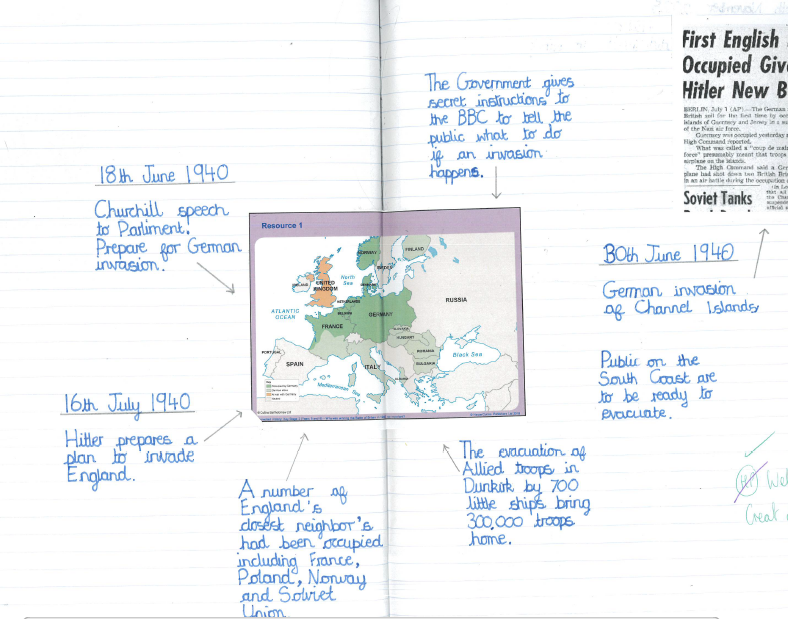 First English
Occupied Giv
Hitler New B
BERLIN, July 1 (AP).—The German
British soil for the first time by oc
islands of Guernsey and Jersey in a
of the Nazi air force.
Guernsey was occupied yesterday
High Command reported.
What was called a "coup de
force" presumably meant that troops
airplane on the islands.
The High Command said a Ger
plane had shot down two British Bri
in an air battle during the occupation
Soviet Tanks
The Government gives
secret instructions to
the BBC to tell the
public what to do
if an invasion
happens.
18th June 1940
Churchill speech
to Parliment.
Prepare for German
invasion.
Resource 1
NORWAY
FINLAND
North
Sea
IRELAND
UNITED
KINGDOM
NETHERLANDS
ATLANTIC
OCEAN
GERMANY
RUSSIA
FRANCE
HUNGARY
ROMANIA
BULGARIA
Black Sea
PORTUGAL
SPAIN
ITALY
Mediterranean Sea
30th June 1940
German invasion
of Channel Islands
Public on the
South Coast are
to be ready to
evacuate.
16th July 1940
Hitler prepares a
plan to invade
England.
A number of
England's
closest neighbor's
had been occupied
including France,
Poland, Norway
and Soviet
Union
The evacuation of
Allied troops in
Dunkirk by 700
little ships bring
300,000 troops
home.
Wel
Great